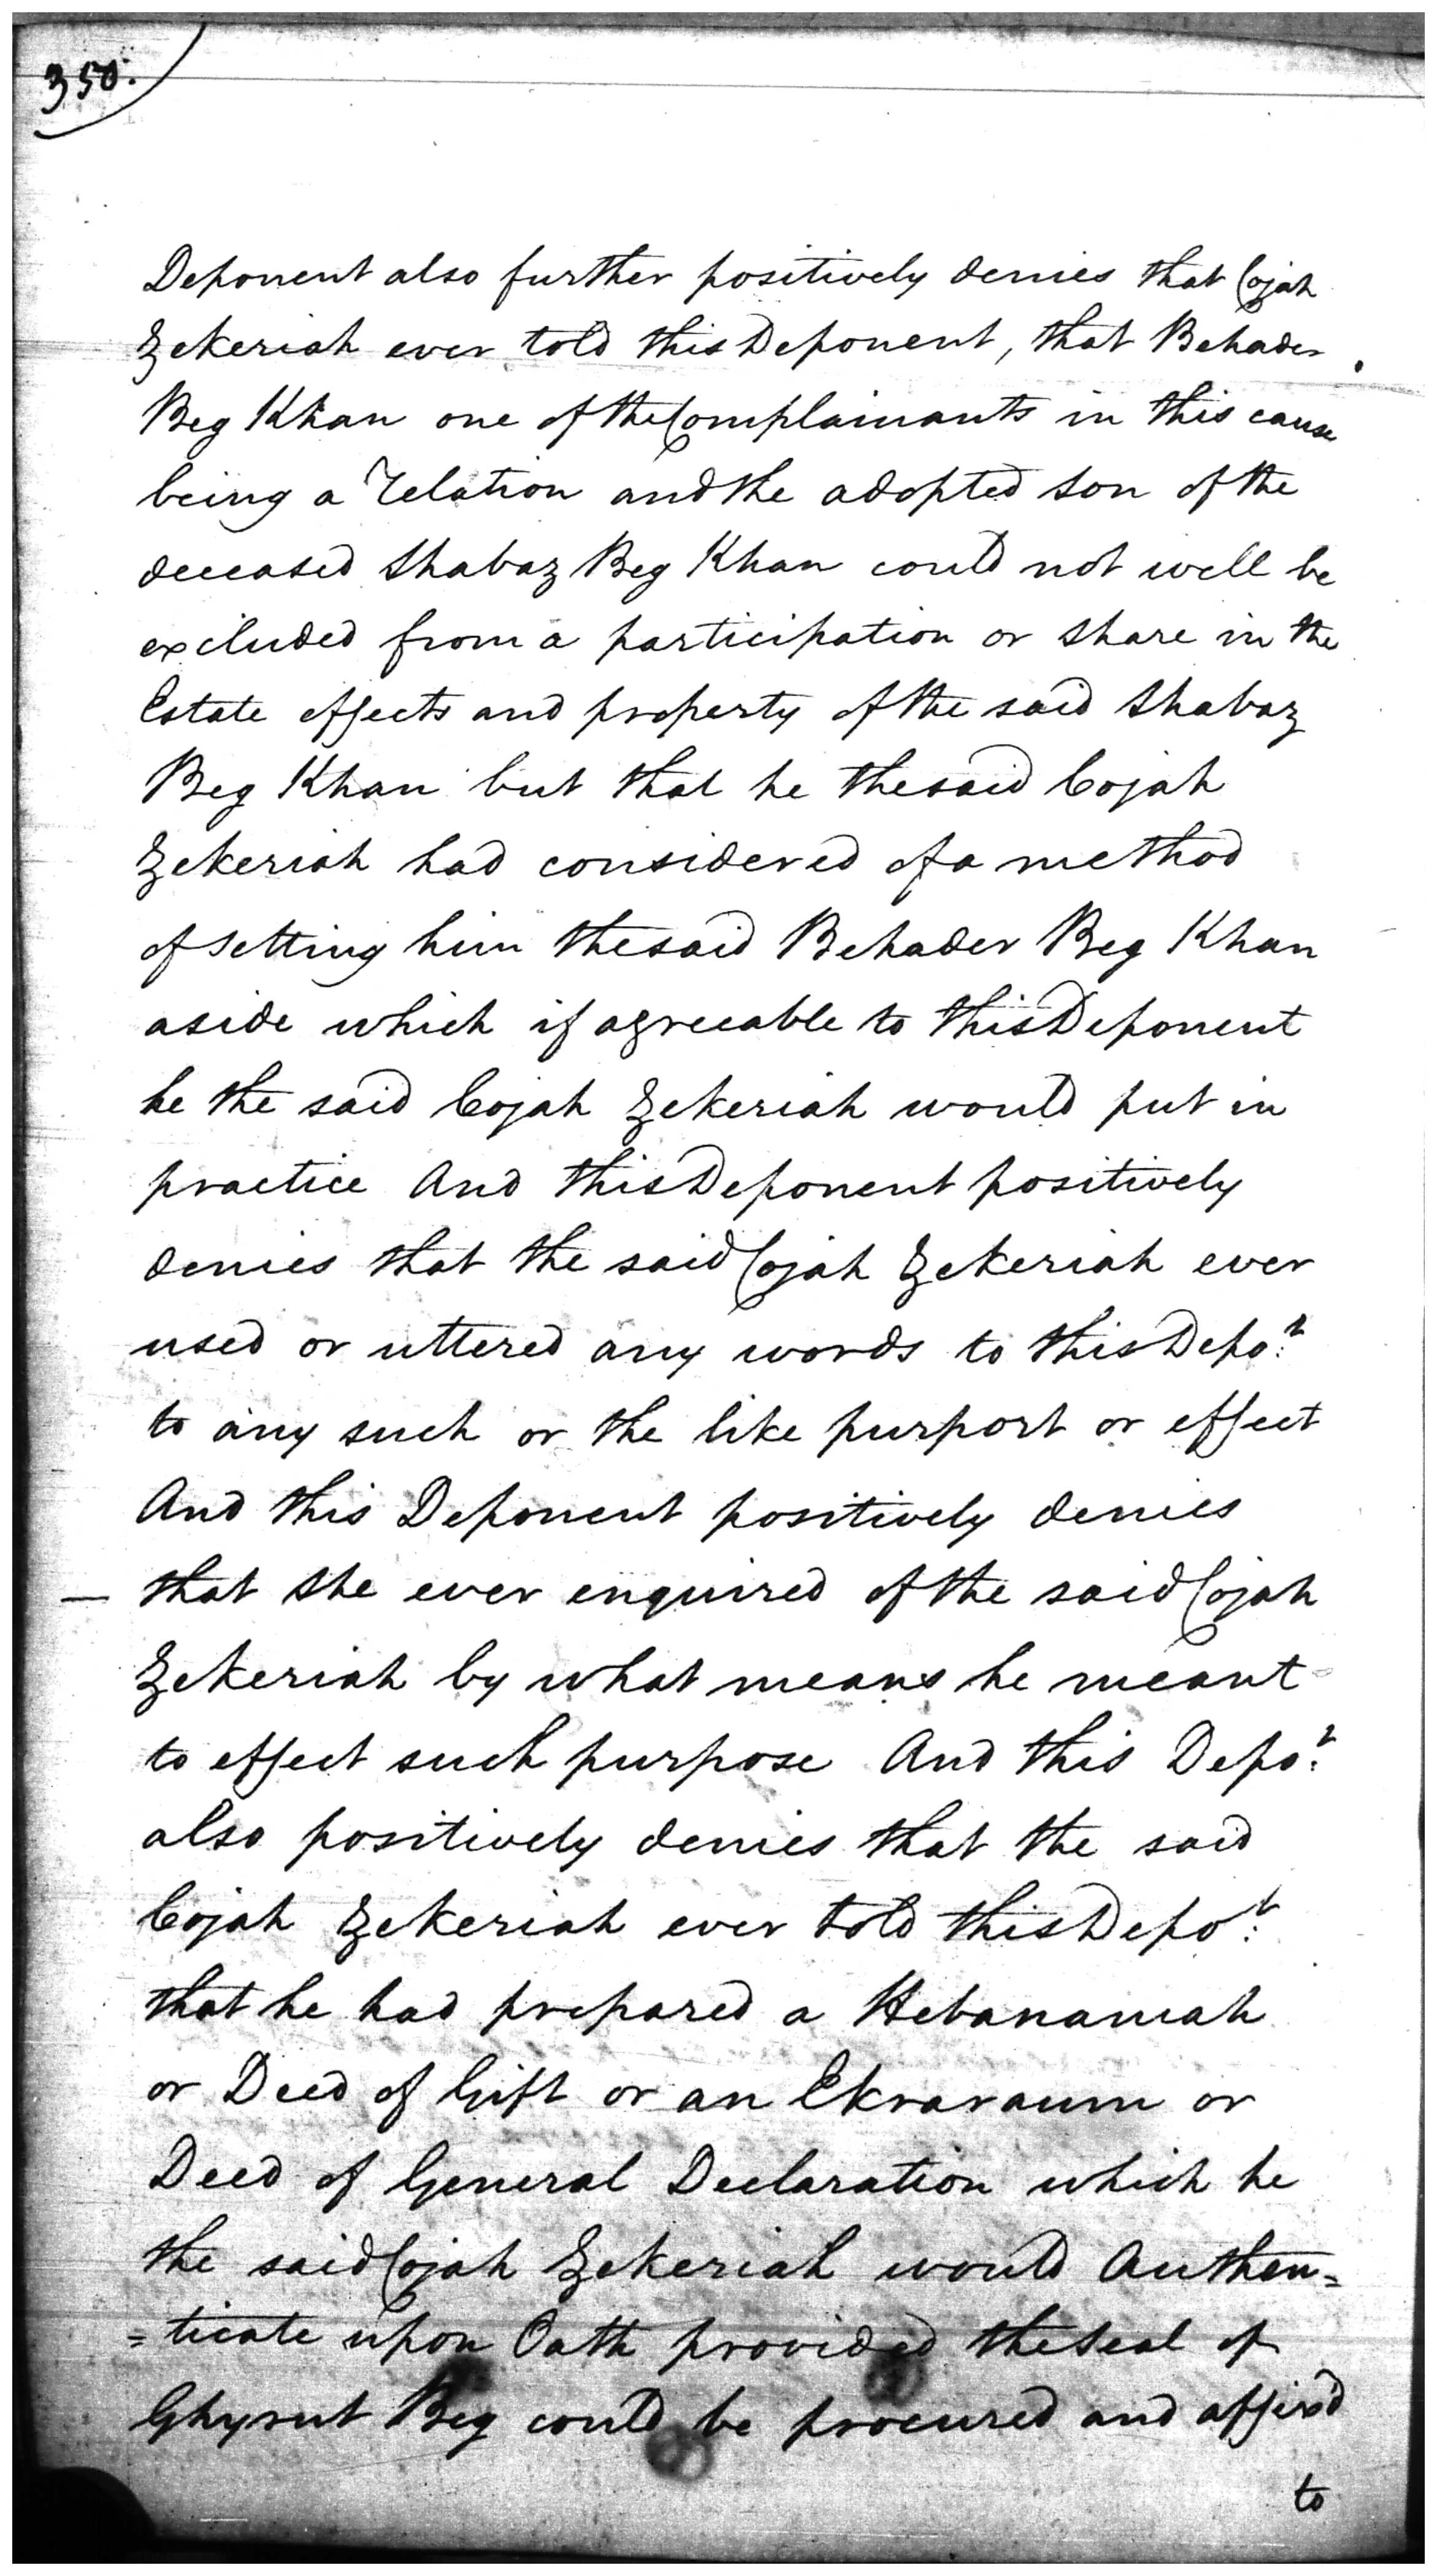 350.
Deponent also further positively denies that Cojah
Zekeriah ever told this Deponent, that Behader
Beg Khan one of the Complainants in this cause
being a relation and the adopted son of the
deceased Shabaz Beg Khan could not well be
excluded from a participation or share in the
Estate effects and property of the said Shabaz
Beg Khan but that he the said Cojah
Zekeriah had considered of a method
of setting him the said Behader Beg Khan
aside which if agreeable to this Deponent
he the said Cojah Zekeriah would put in
practice And this Deponent positively
denies that the said Cojah Zekeriah ever
used or uttered any words to this Depo.t
to any such or the like purport or effect
And this Deponent positively denies
— that she ever enquired of the said Cojah
Zekeriah by what means he meant
to effect such purpose And this Depo.t
also positively denies that the said
Cojah Zekeriah ever told this Depo.t
that he had prepared a Hebanamah
or Deed of Gift or an Ekraraum or
Deed of General Declaration which he
the said Cojah Zekeriah would Authen=
=ticate upon Oath provided the Seal of
Ghyrut Beg could be procured and affix'd
to